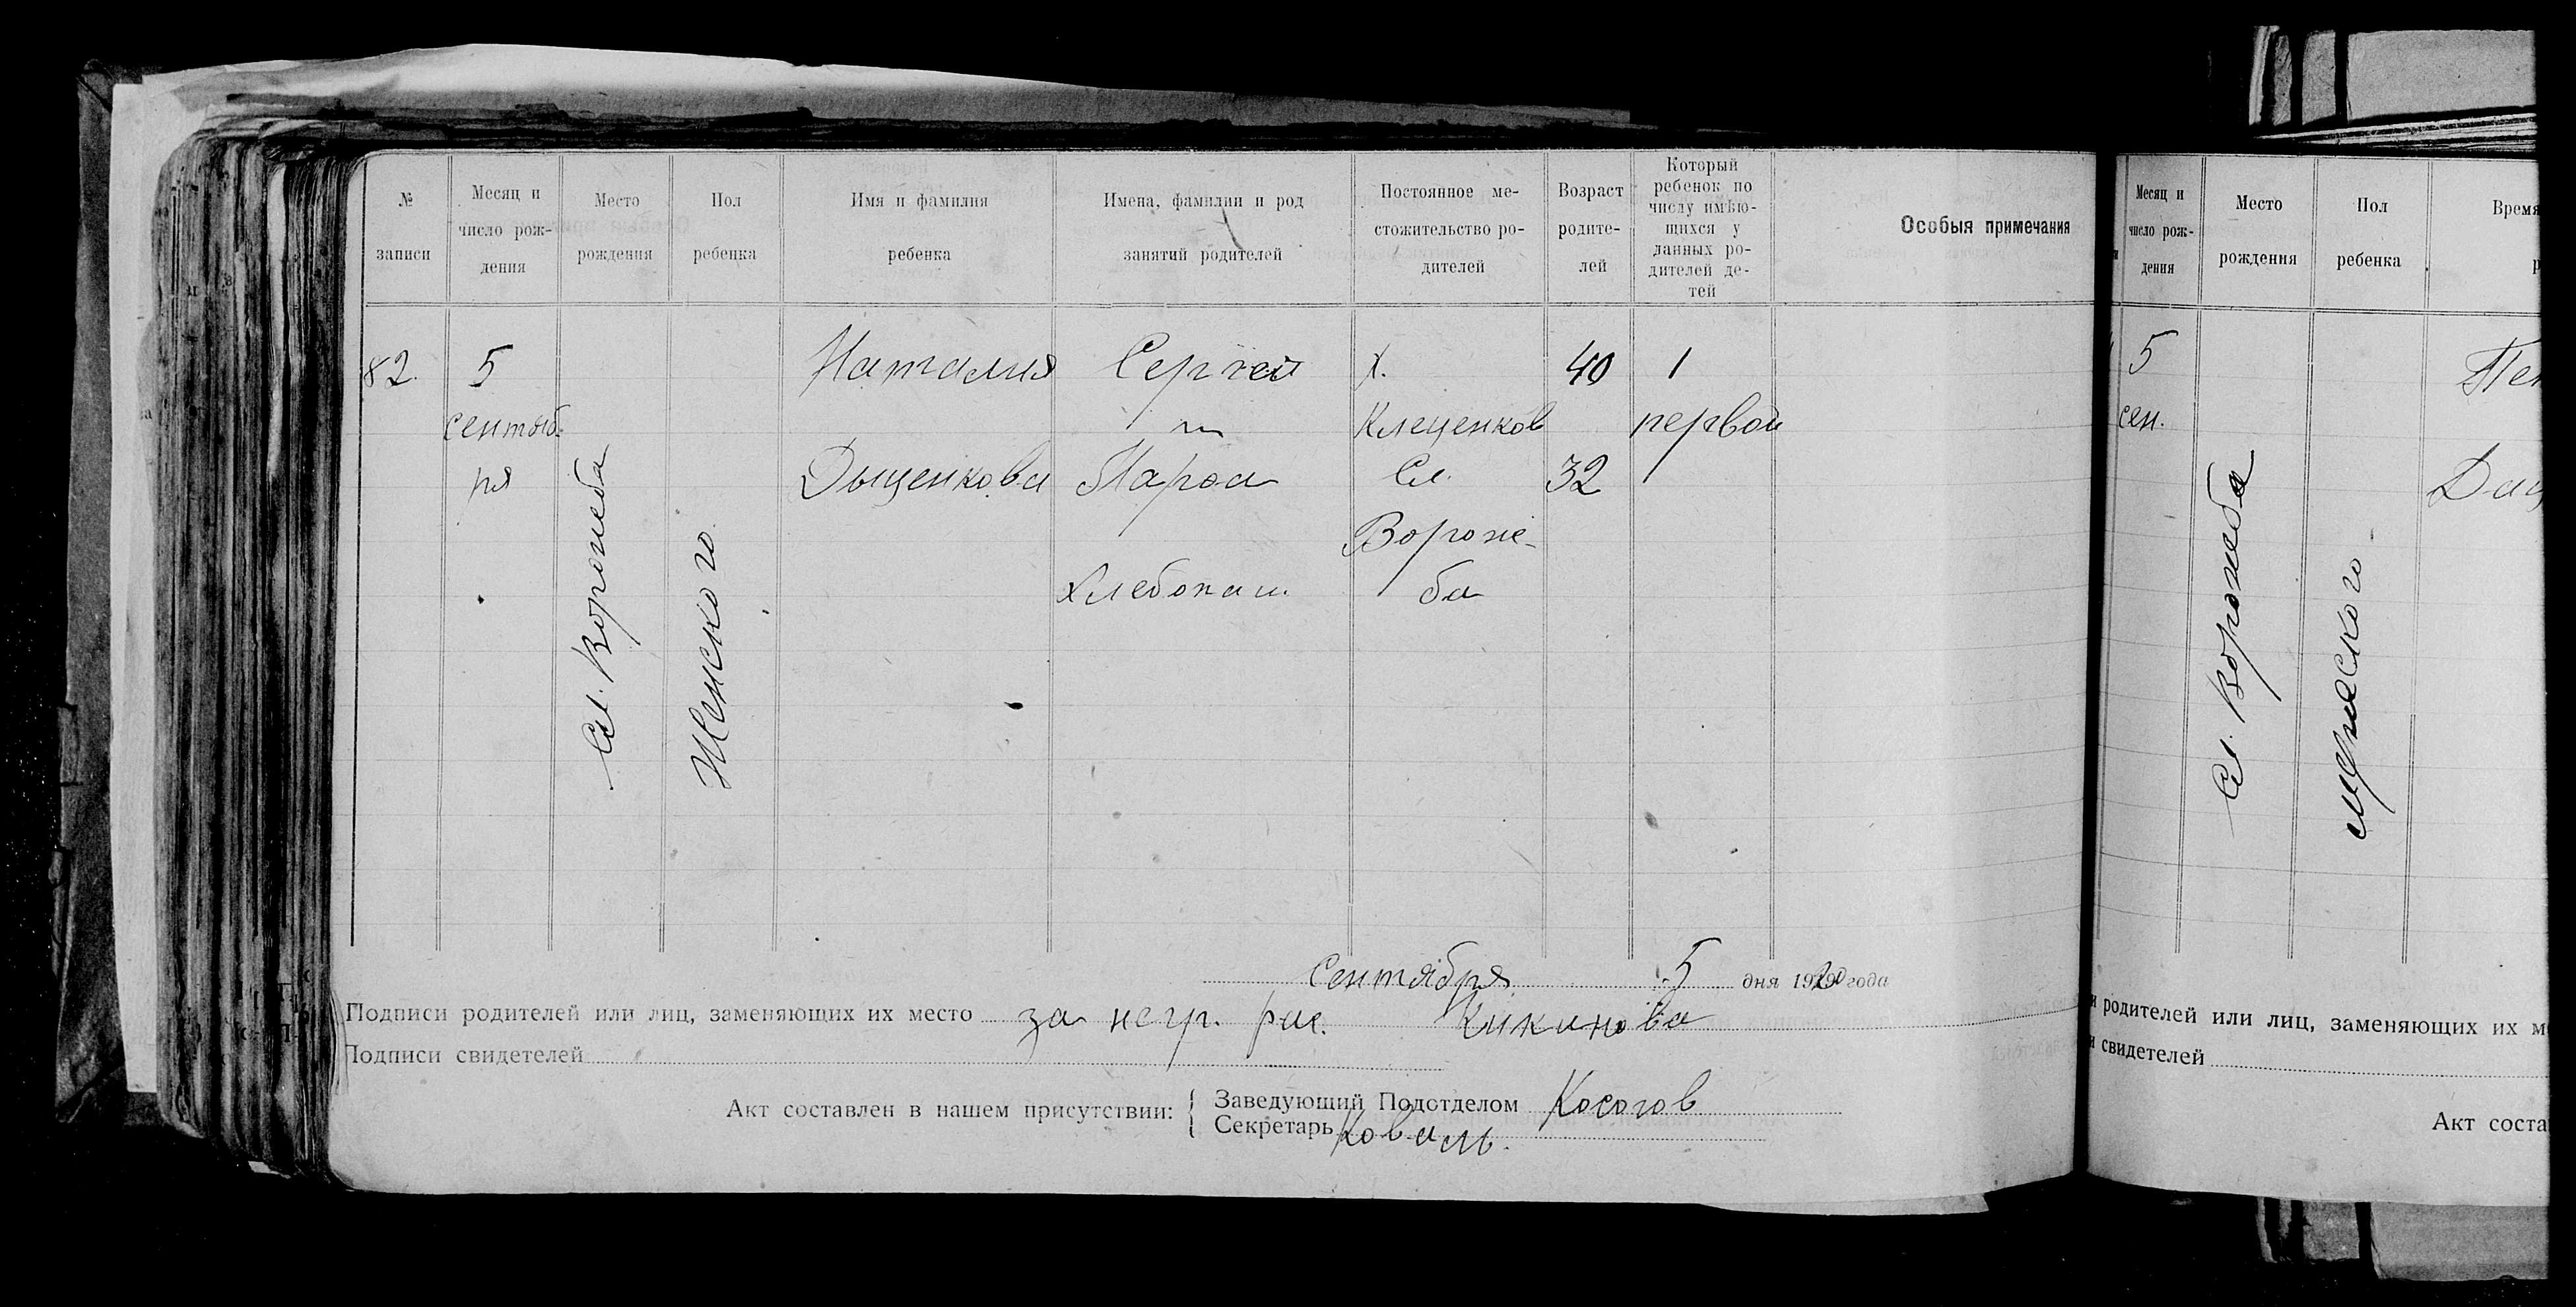 № записи
Месяц и число рождения
Место рождения
Пол ребенка
Имя и фамилия ребенка
Имена, фамилии и род занятий родителей
Постоянное местожительство родителей
Возраст родителей
Который ребенок по числу имѣющихся у данных родителей детей
Особыя примечания
82.
5
сентяб.
ря
Сл. Воронеба
Женского
Наталия
Дыценкова
Сергей
и
Хлебопаш.
х.
Клеценков
Сл.
Вороне-
ба
40
32
1
первой
Сентября 5 дня 1920 года
Подписи родителей или лиц, заменяющих их место за негр. рас. Кикинова
Подписи свидетелей
Акт составлен в нашем присутствии:
Заведующий Подотделом Косогов
Секретарь Коваль.
Месяц и число рождения
Место рождения
Пол ребенка
Время
5
сен.
Сл. Воронеба
мужеского
родителей или лиц, заменяющих их м
свидетелей
Акт соста